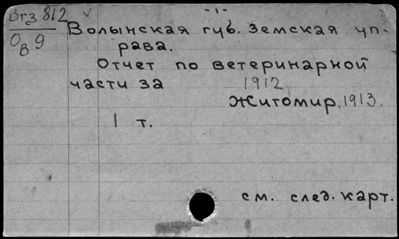 -1-
Вгз 812
Ов 9
Волынская губ. Земская уп-
рава.
Отчет по ветеринарной
части за 1912
Житомир, 1913.
1 т.
см. след. карт.